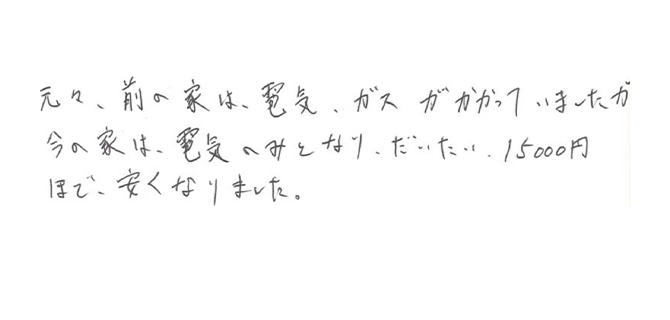 元々、前の家は、電気、ガスがかかっていましたが
今の家は、電気のみとなり、だいたい、15000円
ほど、安くなりました。